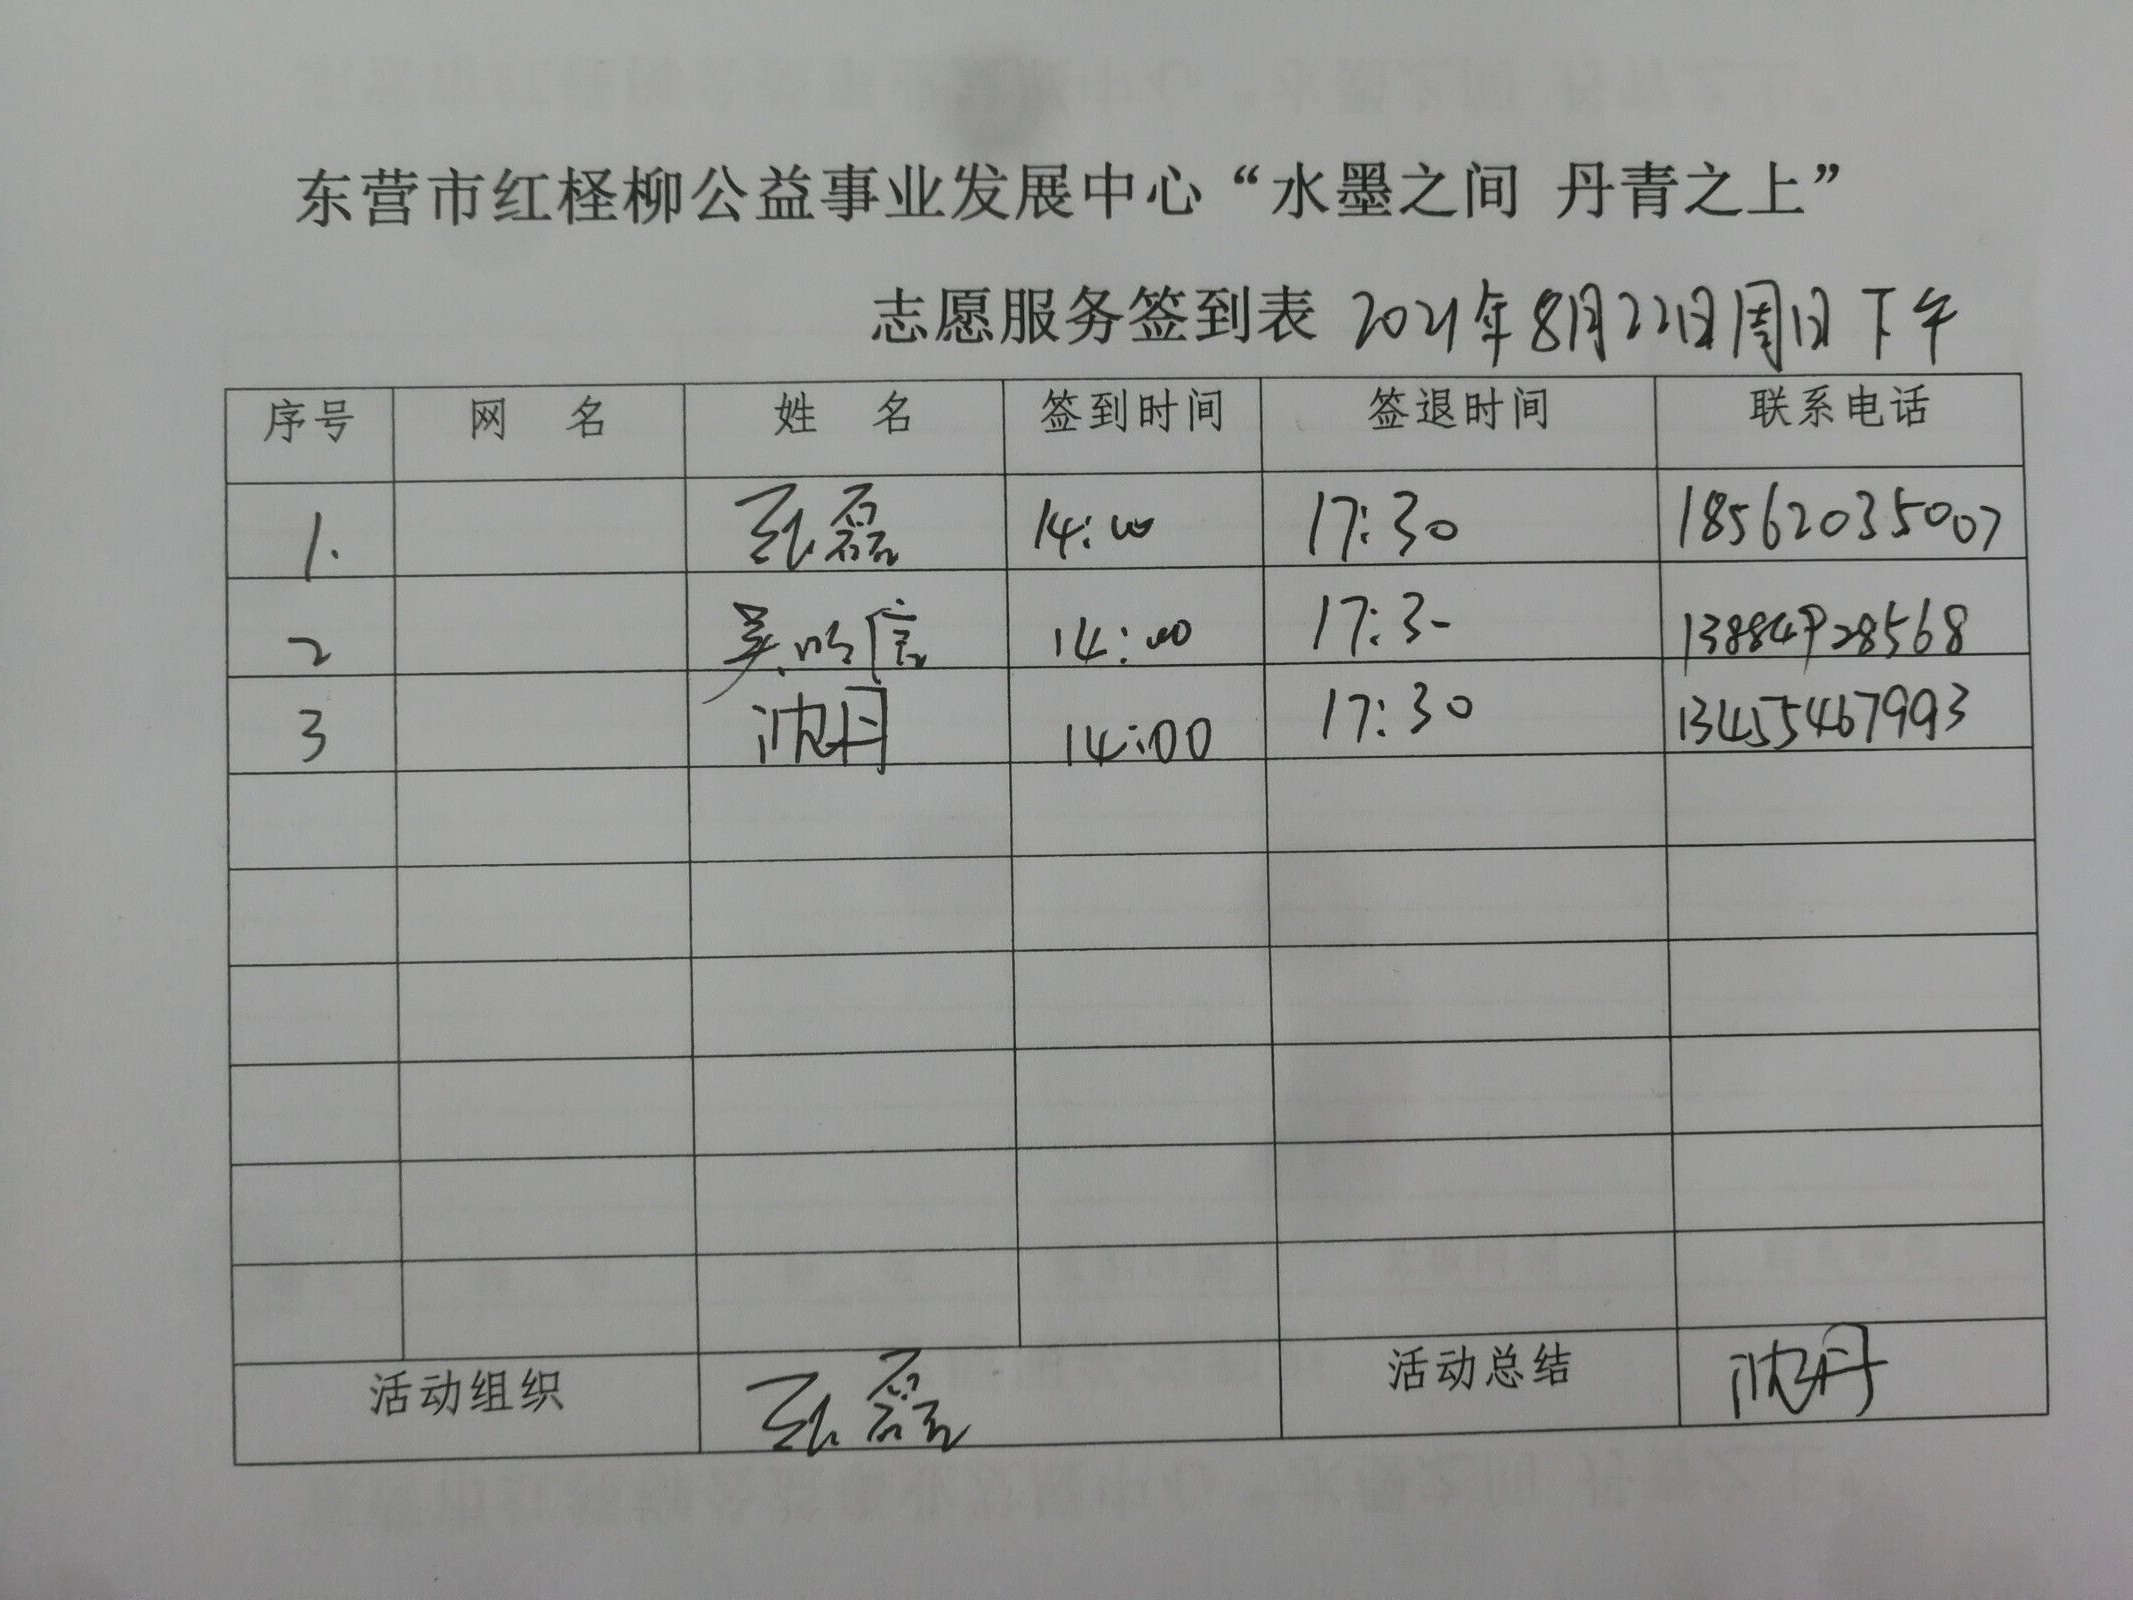 东营市红柽柳公益事业发展中心“水墨之间 丹青之上”
志愿服务签到表 2021年8月22日周日下午
序号 网 名 姓 名 签到时间 签退时间 联系电话
1. 张磊 14:00 17:30 18562035007
2 吴明信 14:00 17:3- 13884928568
3 沈丹 14:00 17:30 13455467993
活动组织 张磊 活动总结 沈丹